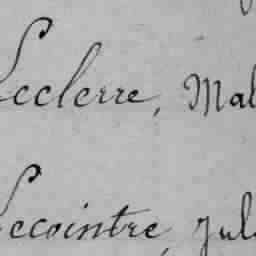 Leclerre, Mal
Lecointre, Jul